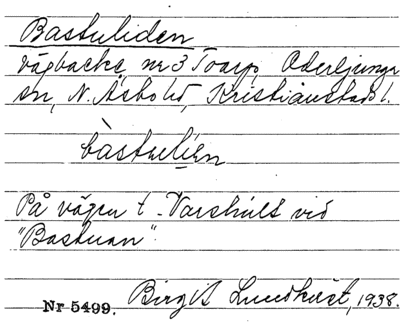 Bastuliden
vägbacke, nr 3 Toarp, Oderljunga
sn, N. Åsbo hd, Kristianstads l.
bàstulíen
På vägen t. Varshult vid
"Bastuan".
Birgit Lundkvist, 1938.
Nr 5499.